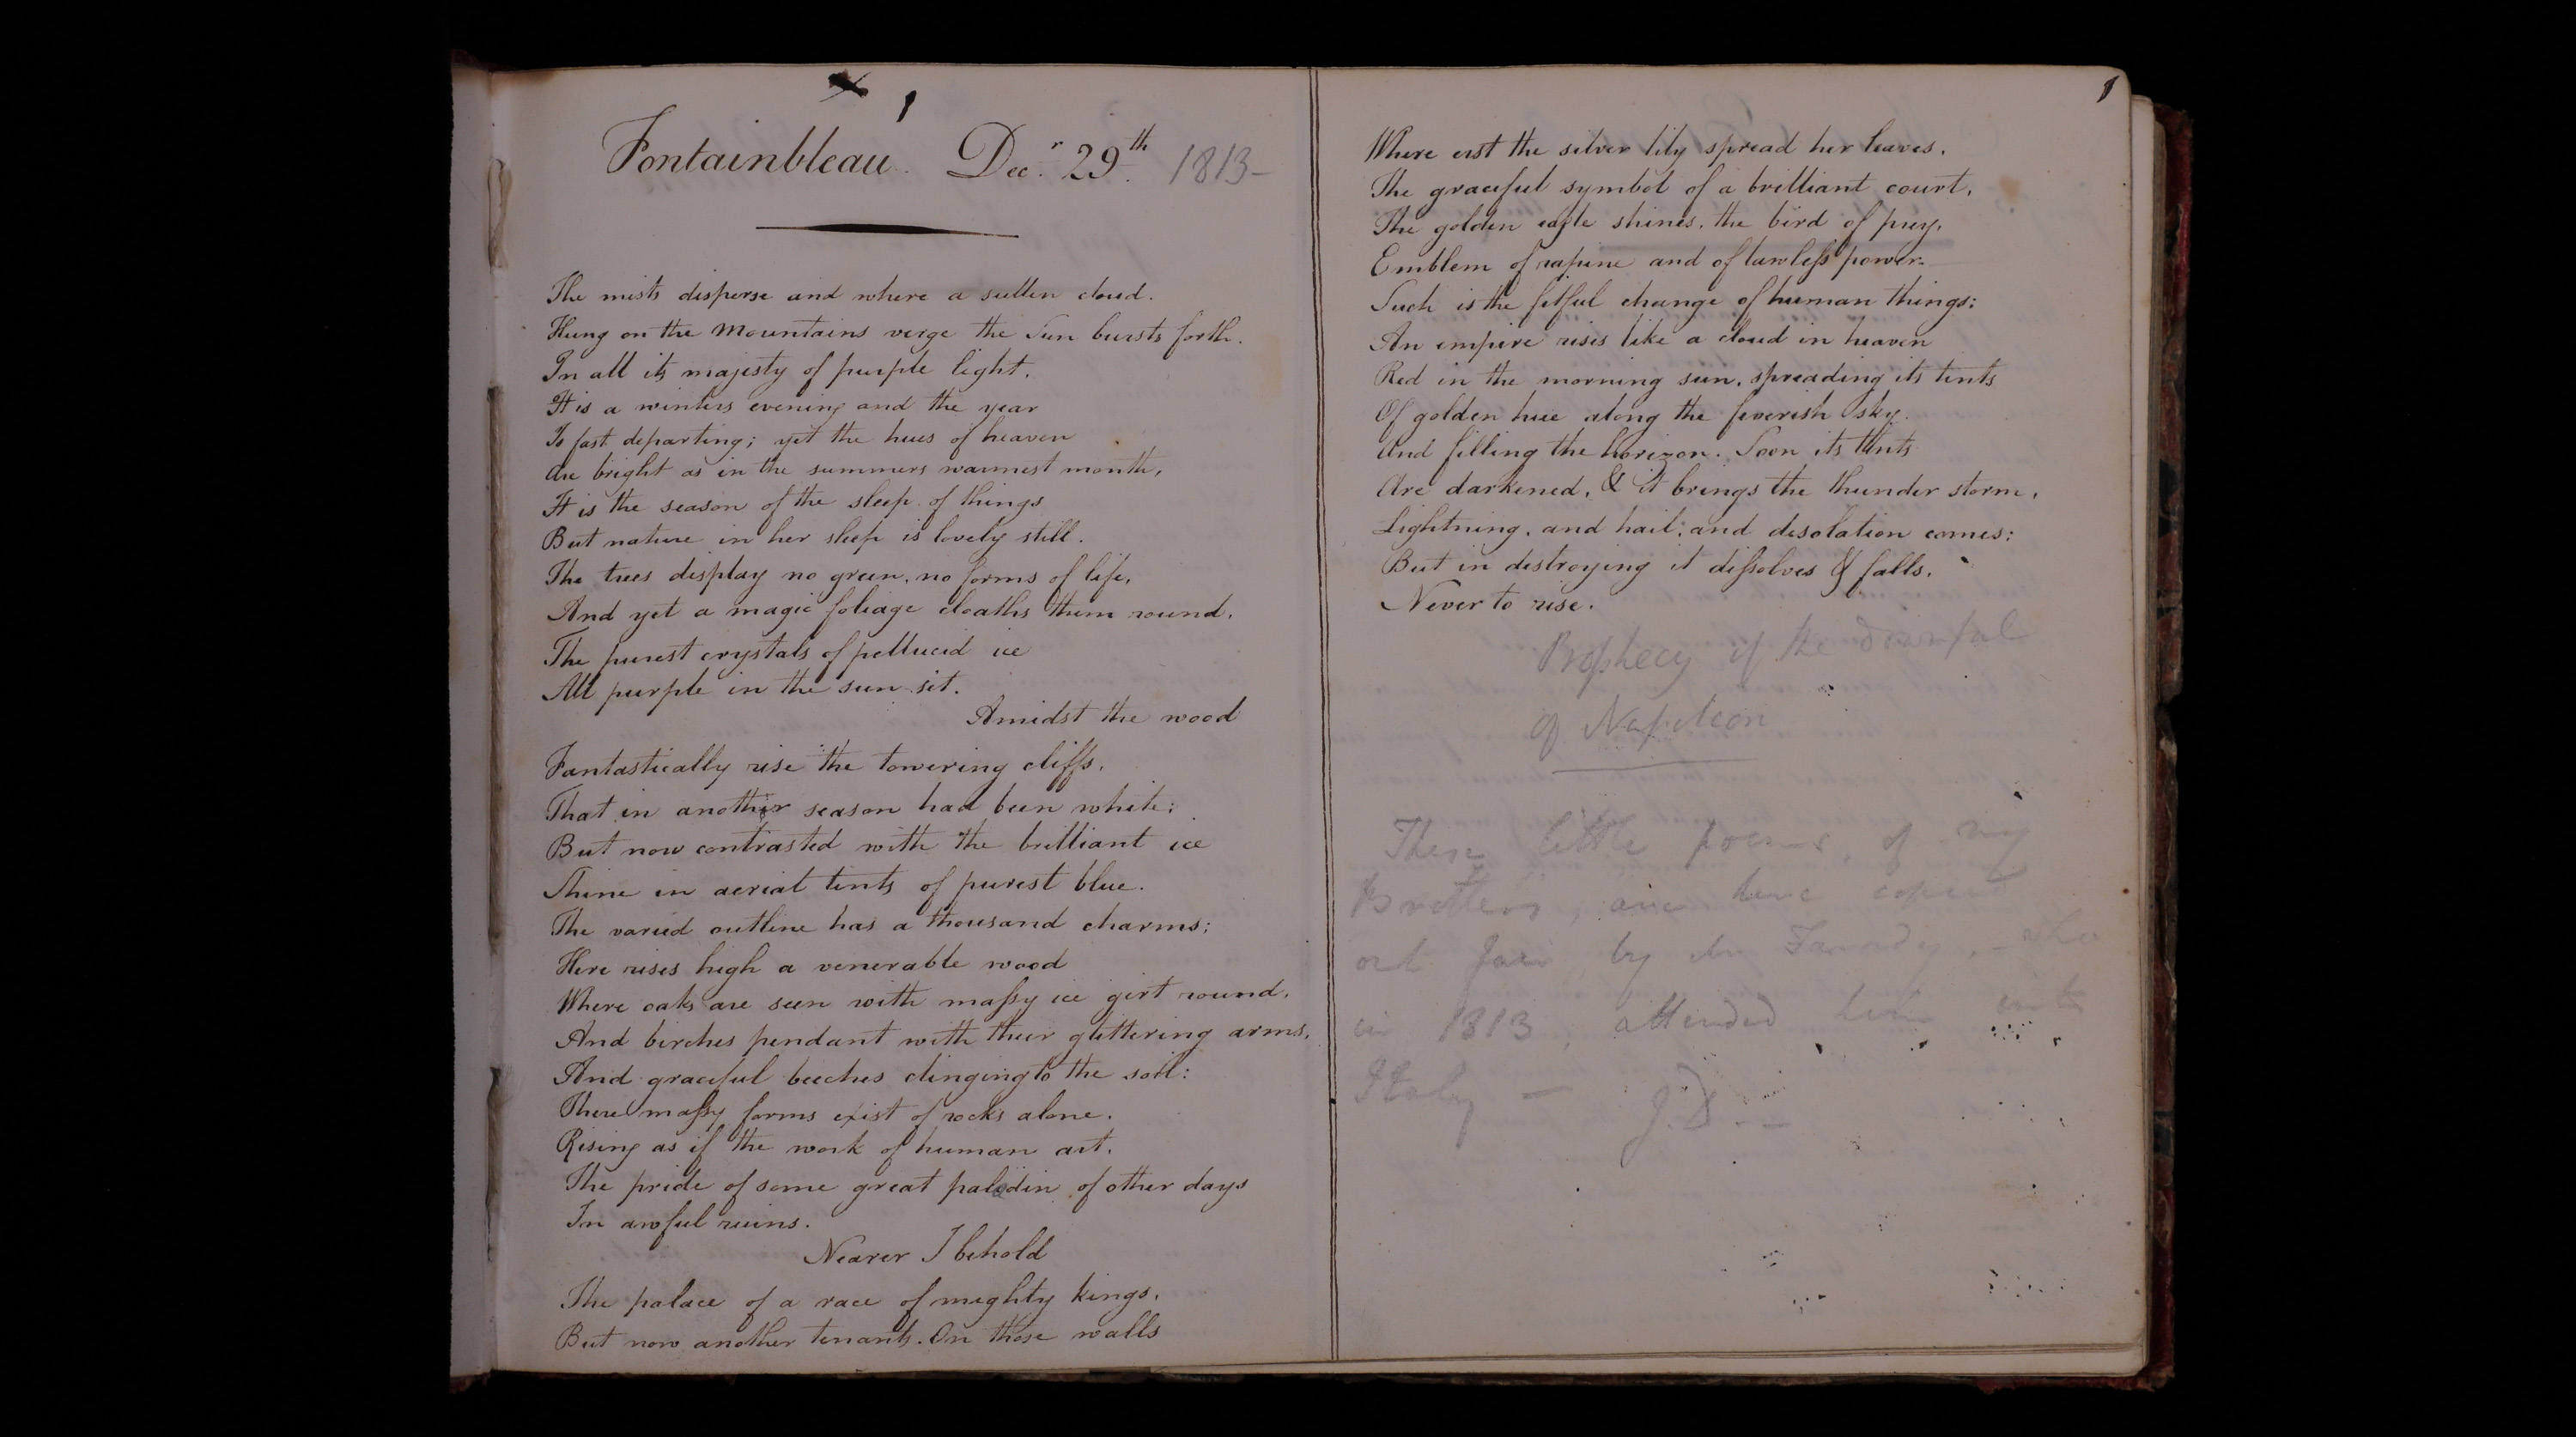 1
Fontainbleau. Decr. 29th. 1813-
The mists disperse and where a sullen cloud.
Hung on the Mountains verge the Sun bursts forth.
In all its majesty of purple light.
It is a winters evening and the year
Is fast departing; yet the hues of heaven
Are bright as in the summers warmest month,
It is the season of the sleep of things
But nature in her sleep is lovely still.
The trees display no green, no forms of life,
And yet a magic foliage cloaths them round,
The purest crystals of pellucid ice
All purple in the sun-set.
Amidst the wood
Fantastically rise the towering cliffs,
That in another season had been white;
But now contrasted with the brilliant ice
Shine in aerial tints of purest blue.
The varied outline has a thousand charms;
Here rises high a venerable wood
Where oaks are seen with massy ice girt round,
And birches pendant with their glittering arms,
And graceful beeches clinging to the soil:
There massy forms exist of rocks alone.
Rising as if the work of human art,
The pride of some great paladin of other days
In awful ruins.
Nearer I behold
The palace of a race of mighty kings,
But now another tenants. On those walls
1
Where erst the silver lily spread her leaves,
The graceful symbol of a brilliant court,
The golden eagle shines, the bird of prey,
Emblem of rapine and of lawless power.
Such is the fitful change of human things:
An empire rises like a cloud in heaven
Red in the morning sun, spreading its tints
Of golden hue along the feverish sky.
And filling the horizon. Soon its tints
Are darkened, & it brings the thunder storm,
Lightning, and hail; and desolation comes:
But in destroying it dissolves & falls,
Never to rise.
Prophecy of the downfal
of Napoleon
These little poems, of my
Brothers, are here copied
out fair by Mr Faraday, - who
in 1813, attended him into
Italy - J.D--